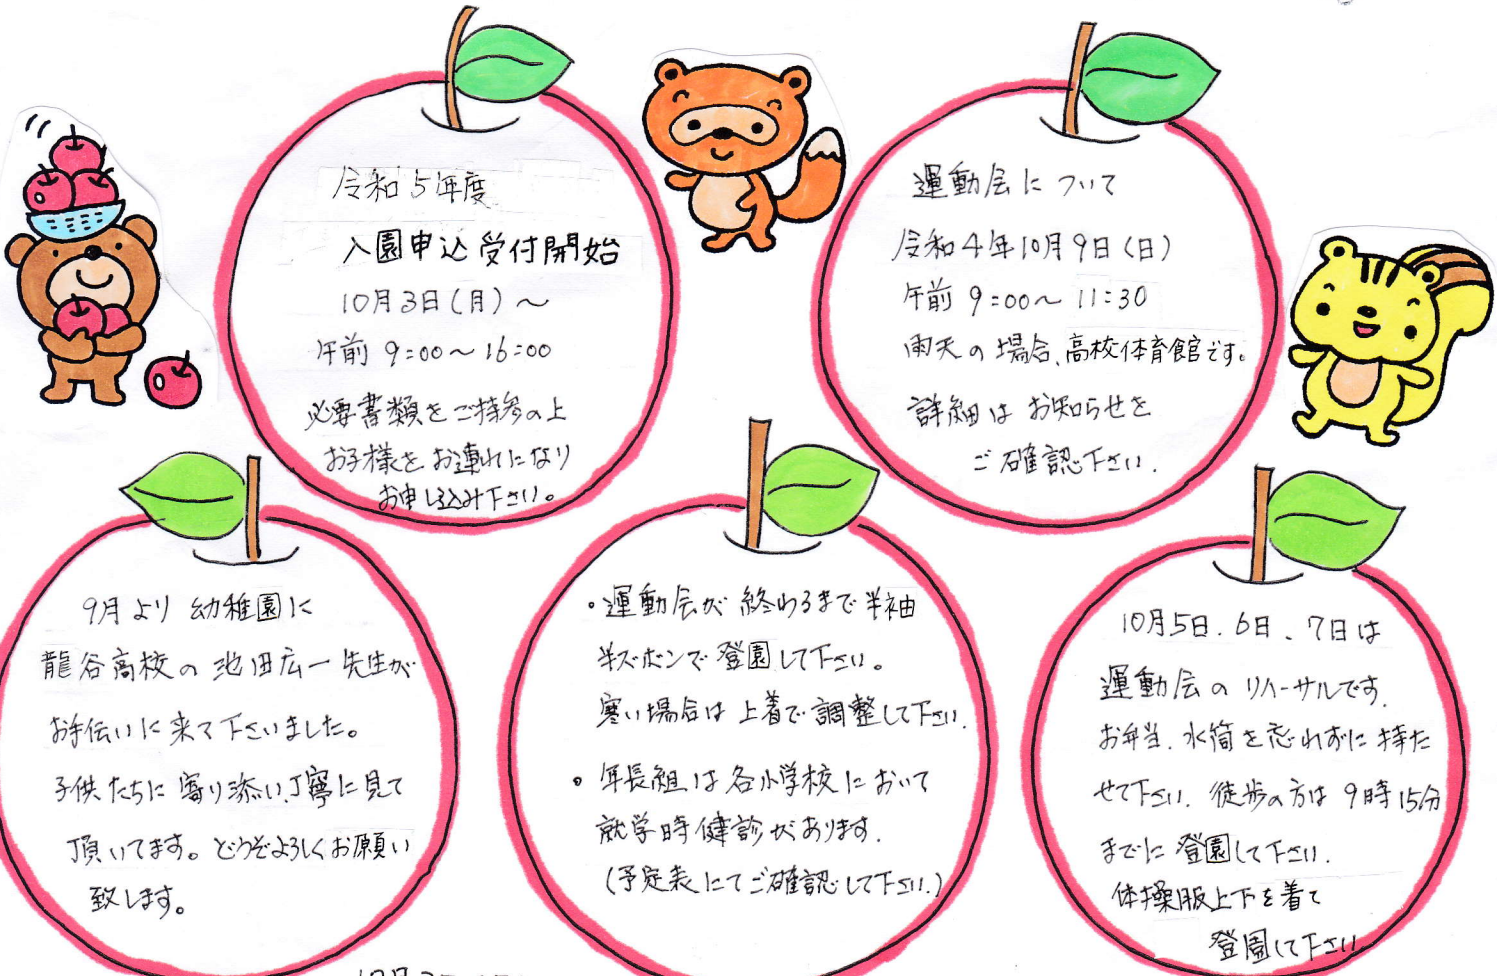 令和5年度
入園申込受付開始
10月3日(月)〜
午前 9:00〜16:00
必要書類をご持参の上
お子様をお連れになり
お申し込み下さい。
運動会について
令和4年10月9日(日)
午前 9:00〜 11:30
雨天の場合、高校体育館です。
詳細は お知らせを
ご確認下さい.
9月より 幼稚園に
龍谷高校の 池田広一先生が
お手伝いに来て下さいました。
子供たちに寄り添い、丁寧に見て
頂いてます。どうぞよろしくお願い
致します。
・運動会が 終わるまで半袖
半ズボンで 登園して下さい。
寒い場合は 上着で調整して下さい.
・年長組は各小学校において
就学時健診があります.
(予定表にてご確認して下さい.)
10月5日.6日、7日は
運動会のリハーサルです.
お弁当.水筒を忘れずに持た
せて下さい.徒歩の方は9時15分
までに登園して下さい.
体操服上下を着て
登園して下さい